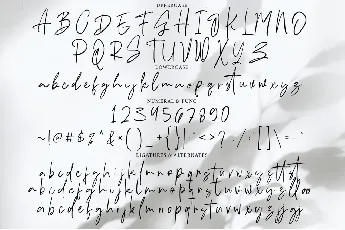 UPPERCASE
ABCDEFGHIJKLMNO
PQRSTUVWXYZ
LOWERCASE
abcdefghijklmnopqrstuvwxyz
NUMERAL & PUNC
1234567890
~!@#$%^&*()_+{}|:<>?-/.[]\=
LIGATURES & ALTERNATES
abcdefghijklmnopqrstuvwxyz
abcdefghijklmnopqrstuvwxyz
abcdefghijklmnopqrstuvwxyz